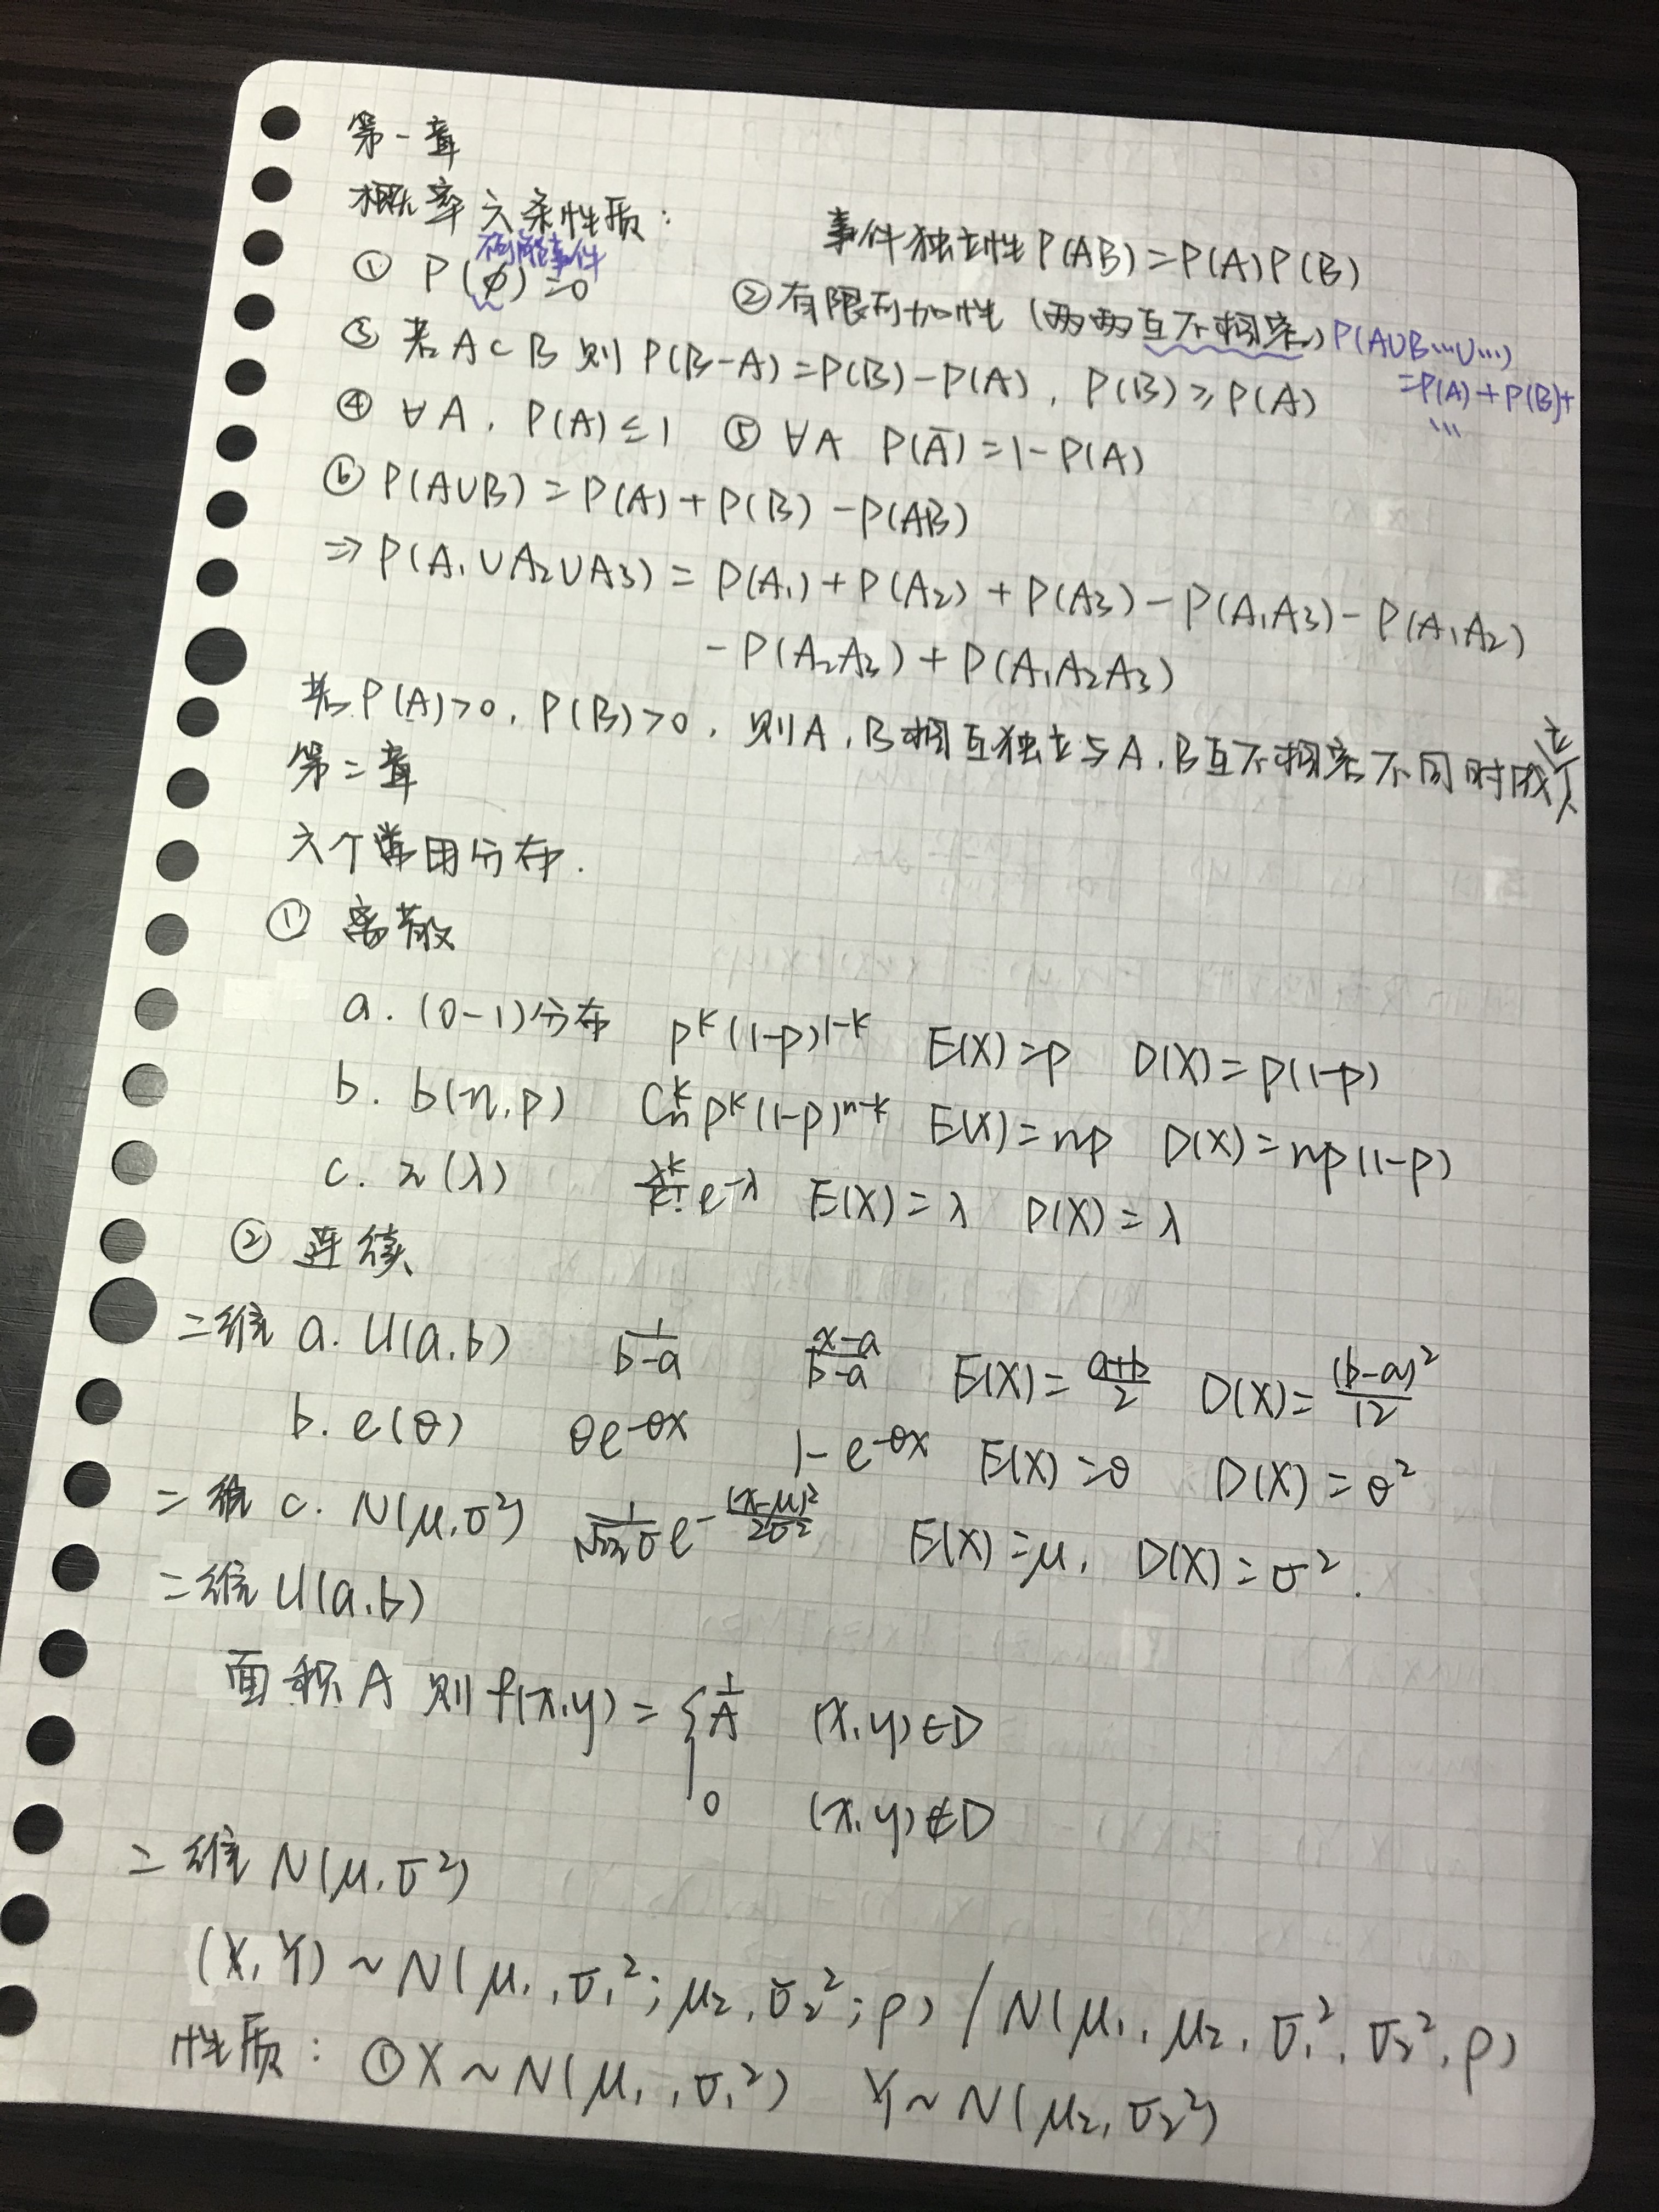 第一章
概率六条性质：
事件独立性P(AB)=P(A)P(B)
不可能事件
① P(∅)=0
②有限可加性(两两互不相容)P(A∪B…∪…)
=P(A)+P(B)+
…
③ 若A⊂B则P(B-A)=P(B)-P(A)，P(B)≥P(A)
④ ∀A，P(A)≤1 ⑤ ∀A P(Ā)=1-P(A)
⑥ P(A∪B)=P(A)+P(B)-P(AB)
⇒P(A₁∪A₂∪A₃)=P(A₁)+P(A₂)+P(A₃)-P(A₁A₃)-P(A₁A₂)
-P(A₂A₃)+P(A₁A₂A₃)
若P(A)>0，P(B)>0，则A，B相互独立与A，B互不相容不同时成立
第二章
六个常用分布．
① 离散
a. (0-1)分布 p^k(1-p)^{1-k} E(X)=p D(X)=p(1-p)
b. b(n,p) C_n^k p^k(1-p)^{n-k} E(X)=np D(X)=np(1-p)
c. π(λ) λ^k/k! e^{-λ} E(X)=λ D(X)=λ
② 连续
二维 a. U(a,b) 1/(b-a) (x-a)/(b-a) E(X)=(a+b)/2 D(X)=(b-a)²/12
b. e(θ) θe^{-θx} 1-e^{-θx} E(X)=θ D(X)=θ²
二维 c. N(μ,σ²) 1/(√2π σ) e^{-(x-μ)²/2σ²} E(X)=μ, D(X)=σ².
二维U(a,b)
面积A则f(x,y)={1/A (x,y)∈D
0 (x,y)∉D
二维N(μ,σ²)
(X,Y)~N(μ₁,σ₁²;μ₂,σ₂²;ρ)/N(μ₁,μ₂,σ₁²,σ₂²,ρ)
性质：①X~N(μ₁,σ₁²) Y~N(μ₂,σ₂²)